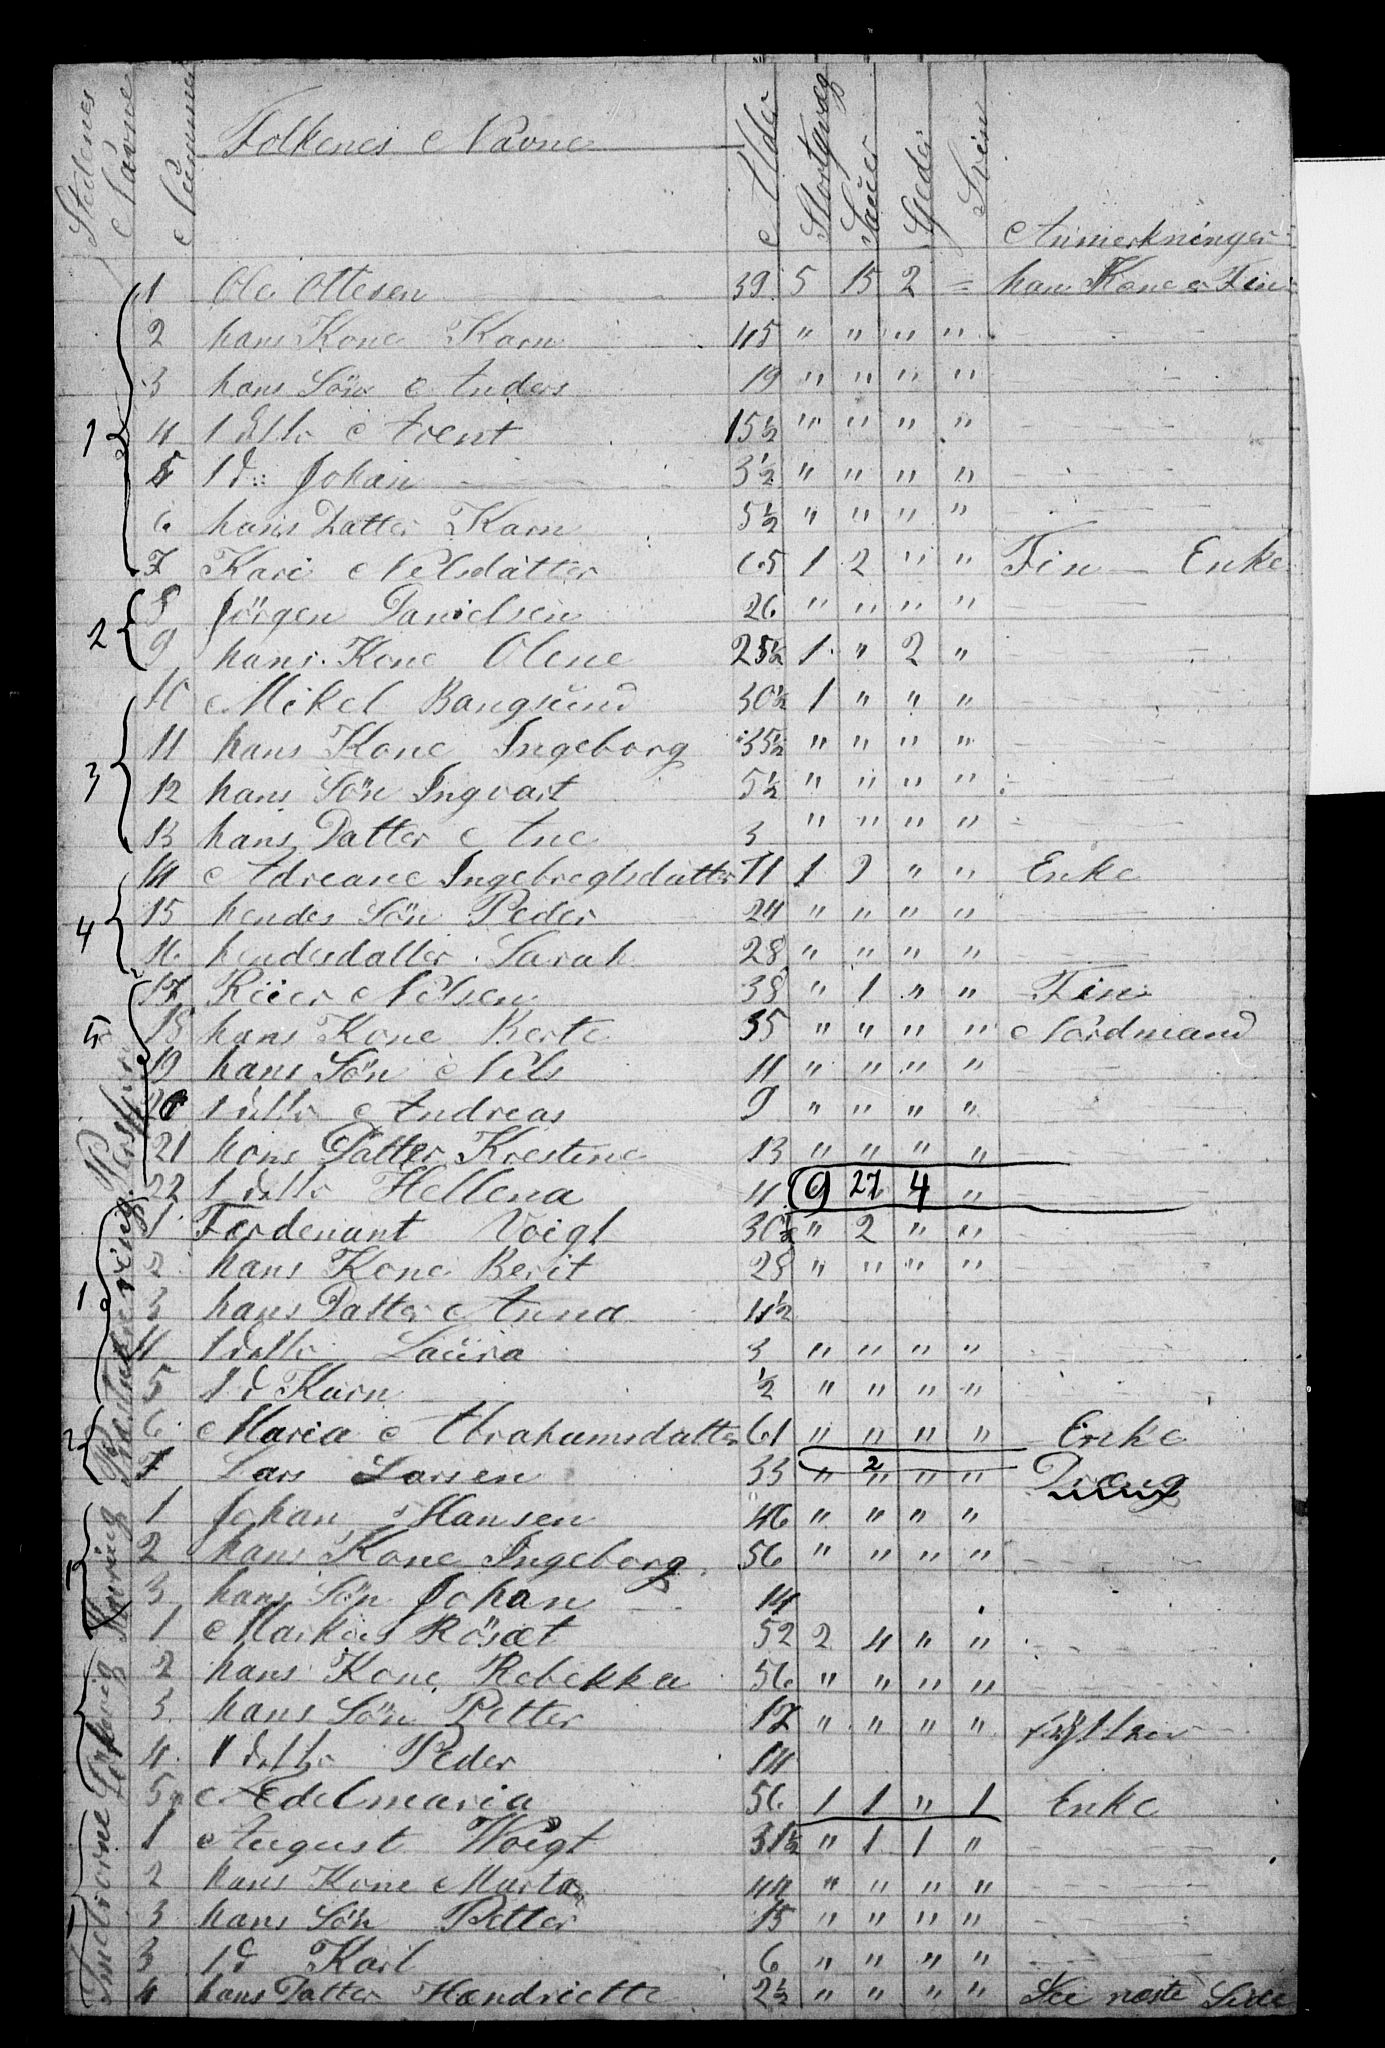 Stedenes Navne Nummer Folkenes Navne Alder Stortqvæg Sauer Gjeder Svin Anmerkninger
1 1 Ole Ottesen 39 5 15 2 = hans Kone er Fin
2 hans Kone Karn 45 " " " "
3 hans Sön Anders 19 " " " "
4 1 ditto Arent 15½ " " " "
5 1 d: Johan 3½ " " " "
6 hans Datter Karn 5½ " " " "
7 Kari Nilsdatter 65 1 2 " " Fin — Enke
2 8 Jörgen Danielsen 26 " " " "
9 hans Kone Olene 25½ 1 " 2 "
3 10 Mikel Bangsund 30½ 1 " " "
11 hans Kone Ingeborg 35½ " " " "
12 hans Sön Ingvart 5½ " " " "
13 hans Datter Ane 3 " " " "
4 14 Adreane Ingebregtsdatter 71 1 9 " " Enke
15 hendes Sön Peder 24 " " " "
16 hendesdatter Sarah 28 " " " "
5 17 Reier Nilsen 38 " 1 " " Fin
18 hans Kone Berte 35 " " " " Nordmand
19 hans Sön Nils 11 " " " "
20 1 ditto Andreas 9 " " " "
21 hans Datter Krestine 13 " " " "
22 1 ditto Hellena 11 9 27 4 "
1 1 Ferdenant Voigt 30½ " 2 " "
2 hans Kone Berit 28 " " " "
3 hans Datter Anna 4½
4 1 ditto Laura 3 " " " "
5 1 d Karn ½ " " " "
2 6 Maria Abrahamsdatter 61 " " " " Enke
7 Lars Larsen 33 " 2 " " " Dræng
1 Johan Hansen 46 " " " "
2 hans Kone Ingeborg 56 " " " "
3 hans Sön Johan 14
1 Markus Rösæt 52 2 4 " "
2 hans Kone Rebekka 56 " " " "
3 hans Sön Petter 17 " " " "
4 1 ditto Peder 14
5 Adelmaria 56 1 1 " 1 Enke
Indiorne 1 1 August Woigt 31½ " 1 1 "
2 hans Kone Marta 44 " " " "
3 hans Sön Petter 15 " " " "
3 1 d Karl 6 " " " "
4 hans Datter Hændriette 2½ " " " " See næste Side